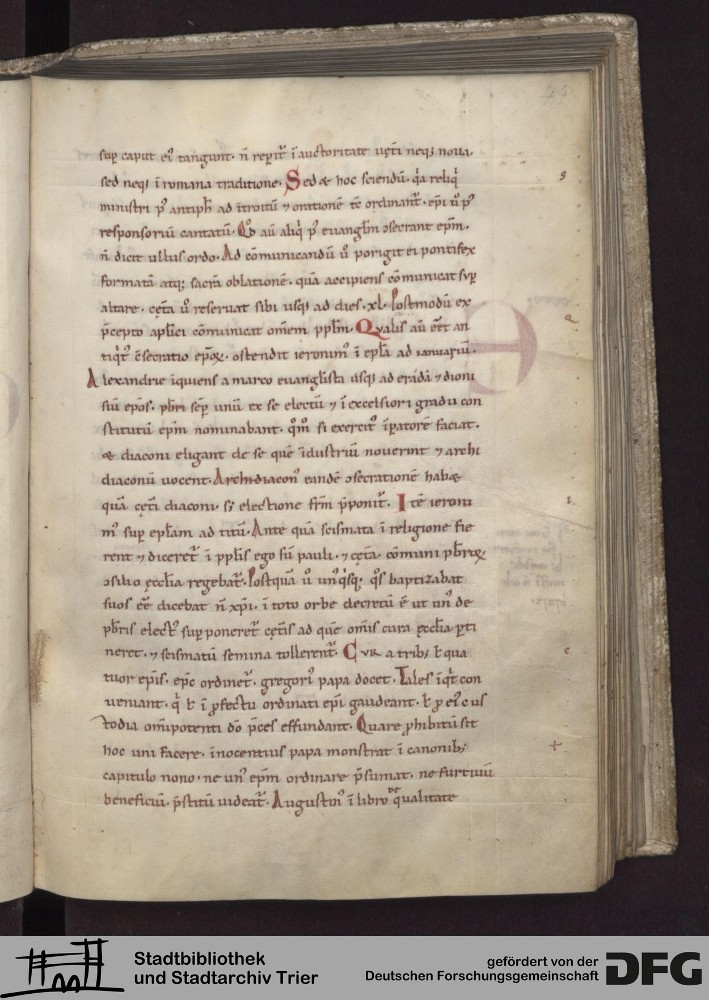 44
sup caput ei' tangunt. n̄ reꝑit᷑ ī auctoritate uęti neq; noua.
sed neq; ī romana traditione. Sed & hoc sciendū. q̇a reliq̇
ministri p' antiph̄ ad ītroitū ⁊ orationē tc̄ ordinant᷑. ep̄i ū p'
responsoriū cantatū. Qd̓ aū aliq̇ p' euangl̄m ↄsecrant ep̄m.
n̄ dicit ullus ordo. Ad cōmunicandū ů porigit ei pontifex
formatā atq; sacrā oblationē. quā accipiens cōmunicat suꝑ
altare. cęta ů reseruat sibi usq; ad dies .xl. Postmodū ex
p̄cepto apl̄ici cōmunicat omēm ppl̄m. Qualis aū eēt an
tiq̇t' ↄsecratio epōꝝ. ostendit ieronim' ī epl̄a ad ianuariū.
Alexandrie īquiens a marco euangl̄ista usq; ad eraclā ⁊ dioni
siū ep̄os. pb̄ri sēꝑ unū ex se electū ⁊ ī excelsiori gradu con
stitutū ep̄m nominabant. qōm si exercit' īꝑatorē faciat.
& diaconi eligant de se quē īdustriū nouerint ⁊ archi
diaconū uocent. Archidiacon' eandē ↄsecrationē hab&
quā cęti diaconi. s; electione frm̄ p̄ponit᷑. Itē ieroni
m' suꝑ epl̄am ad titū. Ante quā scismata ī religione fie
rent ⁊ diceret᷑ ī ppl̄is ego sū pauli. ⁊ cęta. cōmuni pb̄roꝝ
ↄsilio ęccl̄ia regebat᷑. Postquā ů un'q̇sq; q̊s baptizabat
suos eē dicebat n̄ xp̄i. ī toto orbe decretū ē ut un' de
pb̄ris elect' suꝑponeret᷑ cęt̄is ad quē om̄is cura ęccl̄ia ꝑti
neret. ⁊ scismatū semina tollerent᷑. Cur a trib; ł qua
tuor ep̄is. ep̄c ordinet᷑. gregori' papa docet. Tales īq̇t con
ueniant. q̇ ł ī ꝓfectu ordinati ep̄i gaudeant. ł ꝓ ei' cus
todia omīpotenti dō p̄ces effundant. Quare ꝓhibitū sit
hoc uni facere. īnocentius papa monstrat ī canonib;
capitulo nono. ne un' ep̄m ordinare p̄sumat. ne furtiuū
beneficiū. p̄stitū uideat᷑. Augustin' ī libro de q̇ualitate
Stadtbibliothek
und Stadtarchiv Trier
gefördert von der
Deutschen Forschungsgemeinschaft
DFG